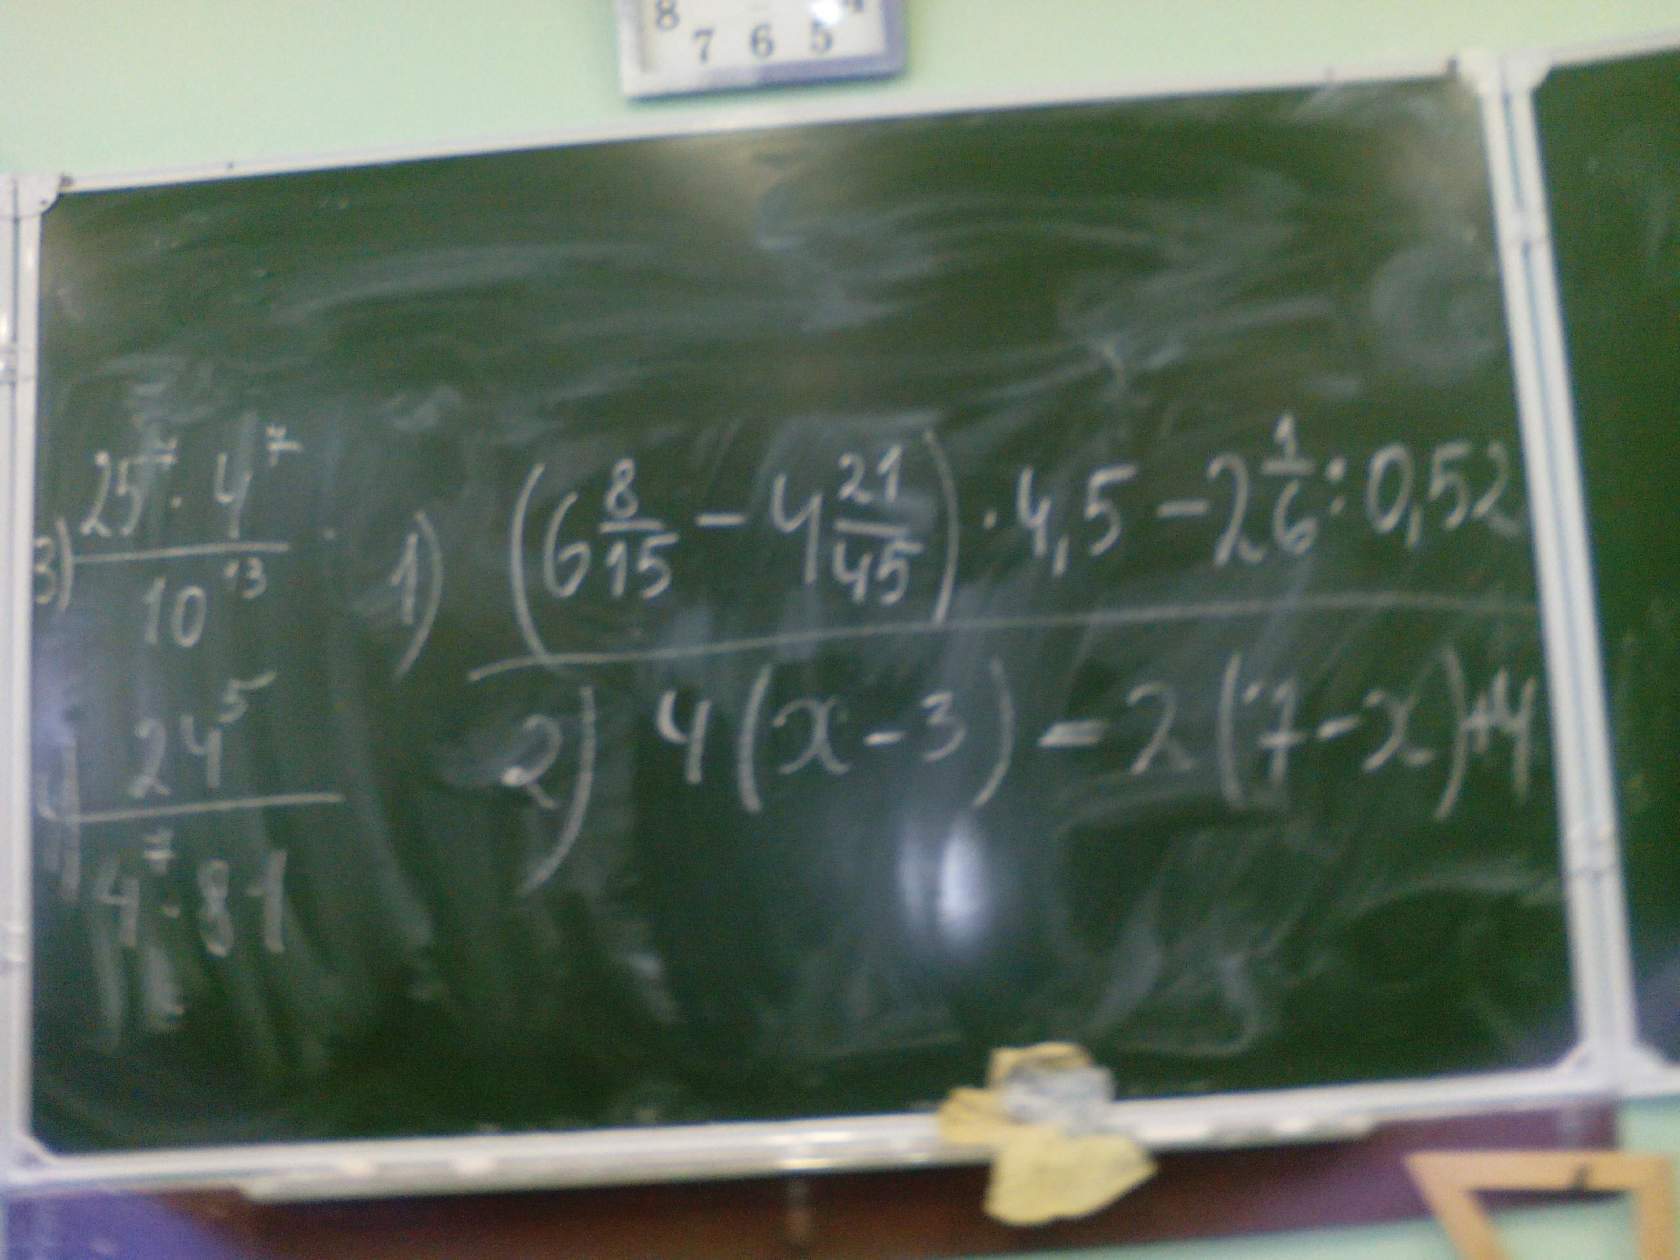 8 7 6 5 4
3) 25⁷ · 4⁷ / 10¹³
24⁵ / 4⁷ · 81
1) (6 8/15 - 4 21/45) · 4,5 - 2 1/6 : 0,52
2) 4(x-3) = 2(7-x)+4